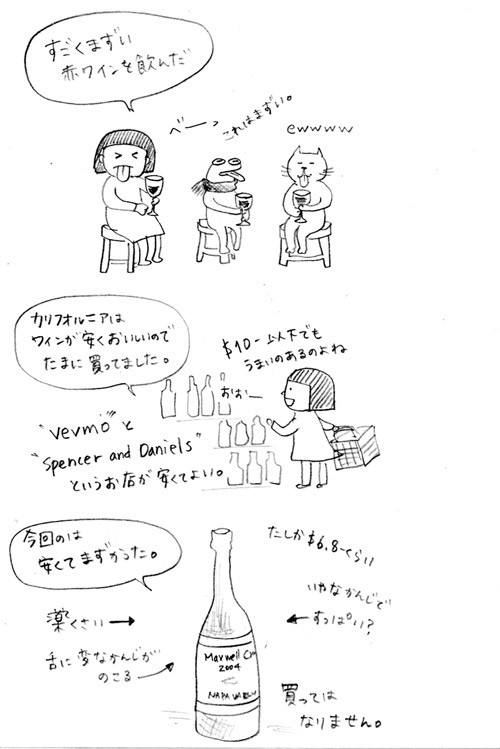 すごくまずい
赤ワインを飲んだ
べーっ
これはまずい。
ewwww
カリフォルニアは
ワインが安くおいしいので
たまに買ってました。
$10-以下でも
うまいのあるのよね
おおー
"vevmo"と
"spencer and Daniels"
というお店が安くてよい。
今回のは
安くてまずかった。
たしか$6.8-くらい
薬くさい→
いやなかんじで
←すっぱい?
舌に変なかんじが
のこる→
Maxwell
2004
NAPA
買っては
なりません。